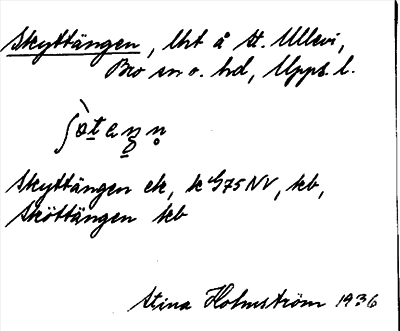 Skyttängen, Urt å St. Ullevi,
Bro sn o. hd, Upps. l.
Skyttängen ek, k 475 NV, kb,
Sköttängen kb
Stina Holmström 1936